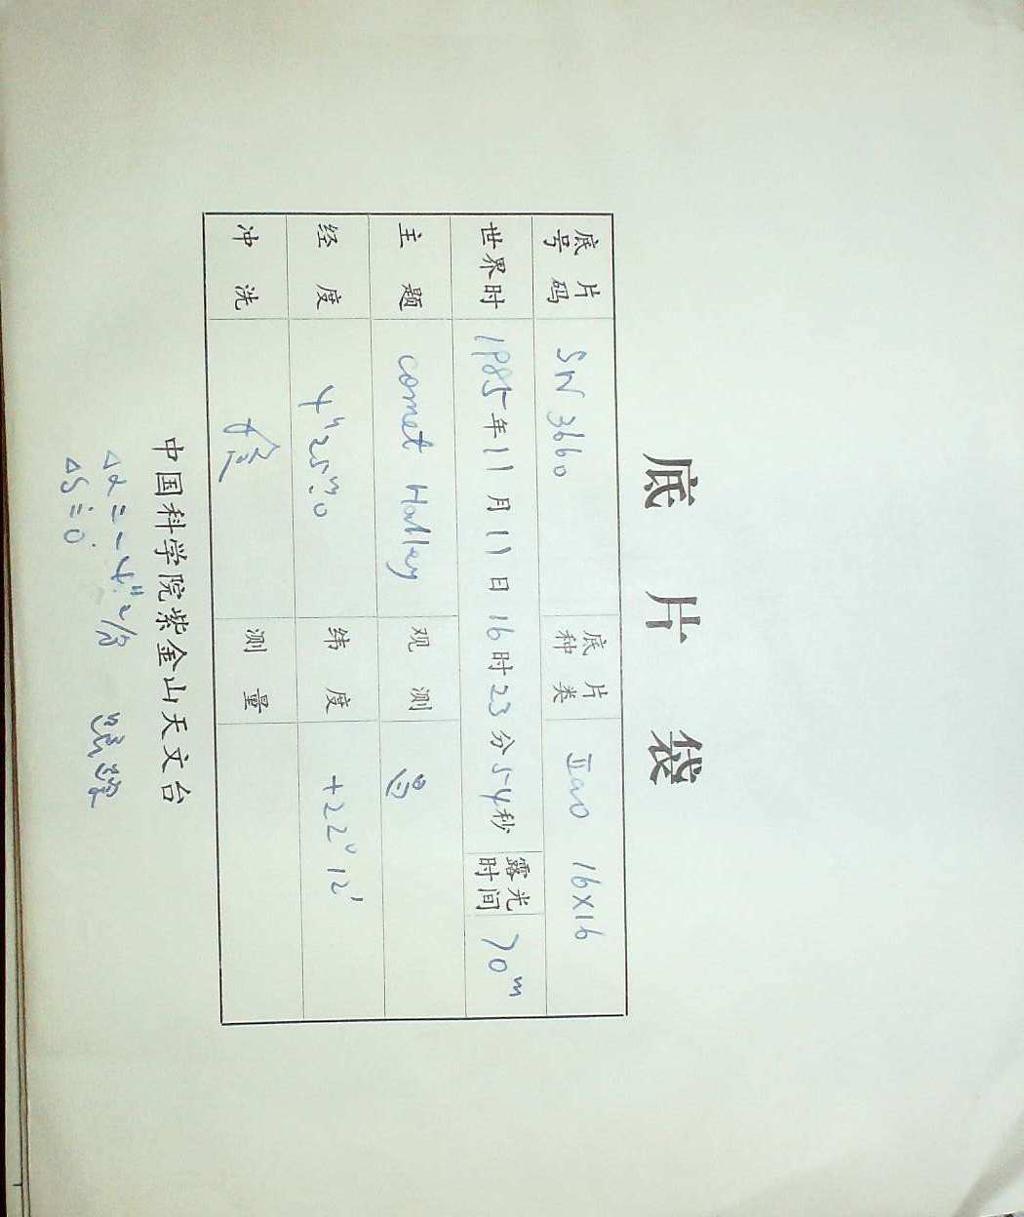 底片袋
底片号码 SN 3660 底片种类 IIaO 16×16
世界时 1985年11月11日16时23分54秒 露光时间 70ᵐ
主题 comet Halley 观测
经度 4ʰ25ᵐ.0 纬度 +22°12′
冲洗 测量
中国科学院紫金山天文台
Δα = -4″.2/分
Δδ = 0